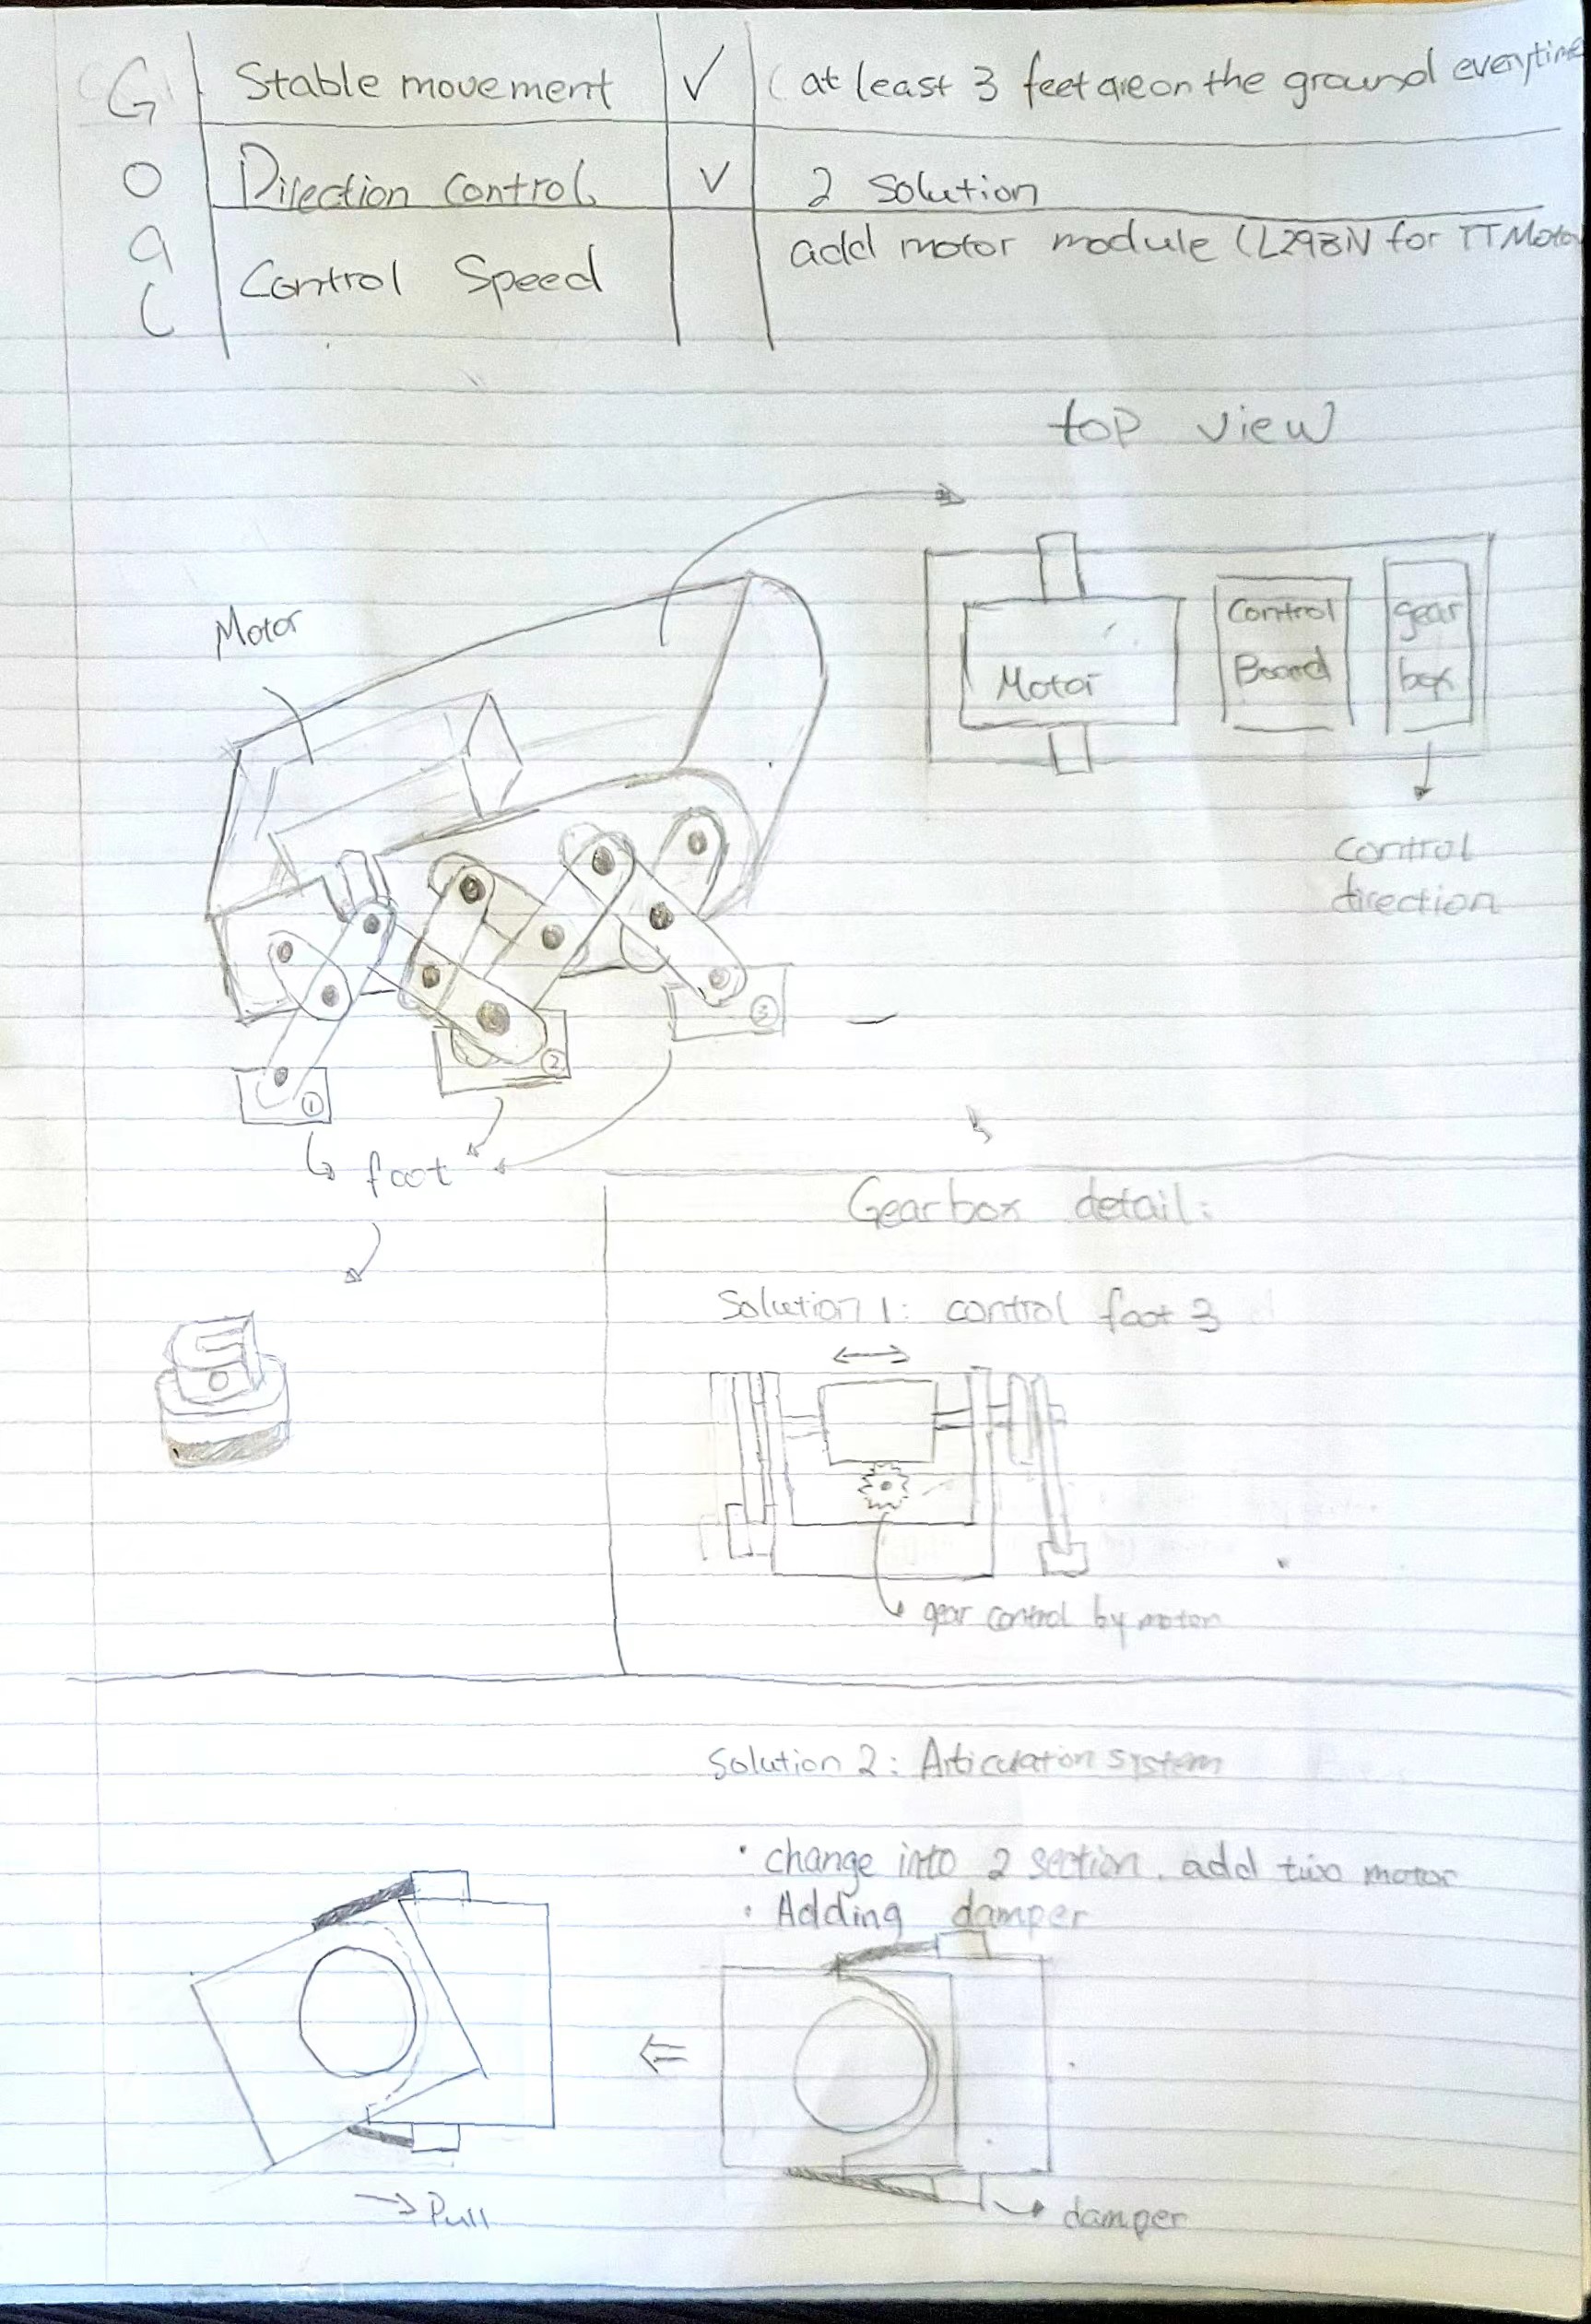 G Stable movement ✓ ( at least 3 feet are on the ground everytime
O Direction Control ✓ 2 Solution
a Control Speed add motor module (L298N for TT Motor
L
top view
Motor
Motor
Control
Board
gear
box
control
direction
①
②
③
foot
Gearbox detail:
Solution 1: control foot 3
gear control by motor
Solution 2: Articulation system
· change into 2 section. add two motor
· Adding damper
→ Pull
damper